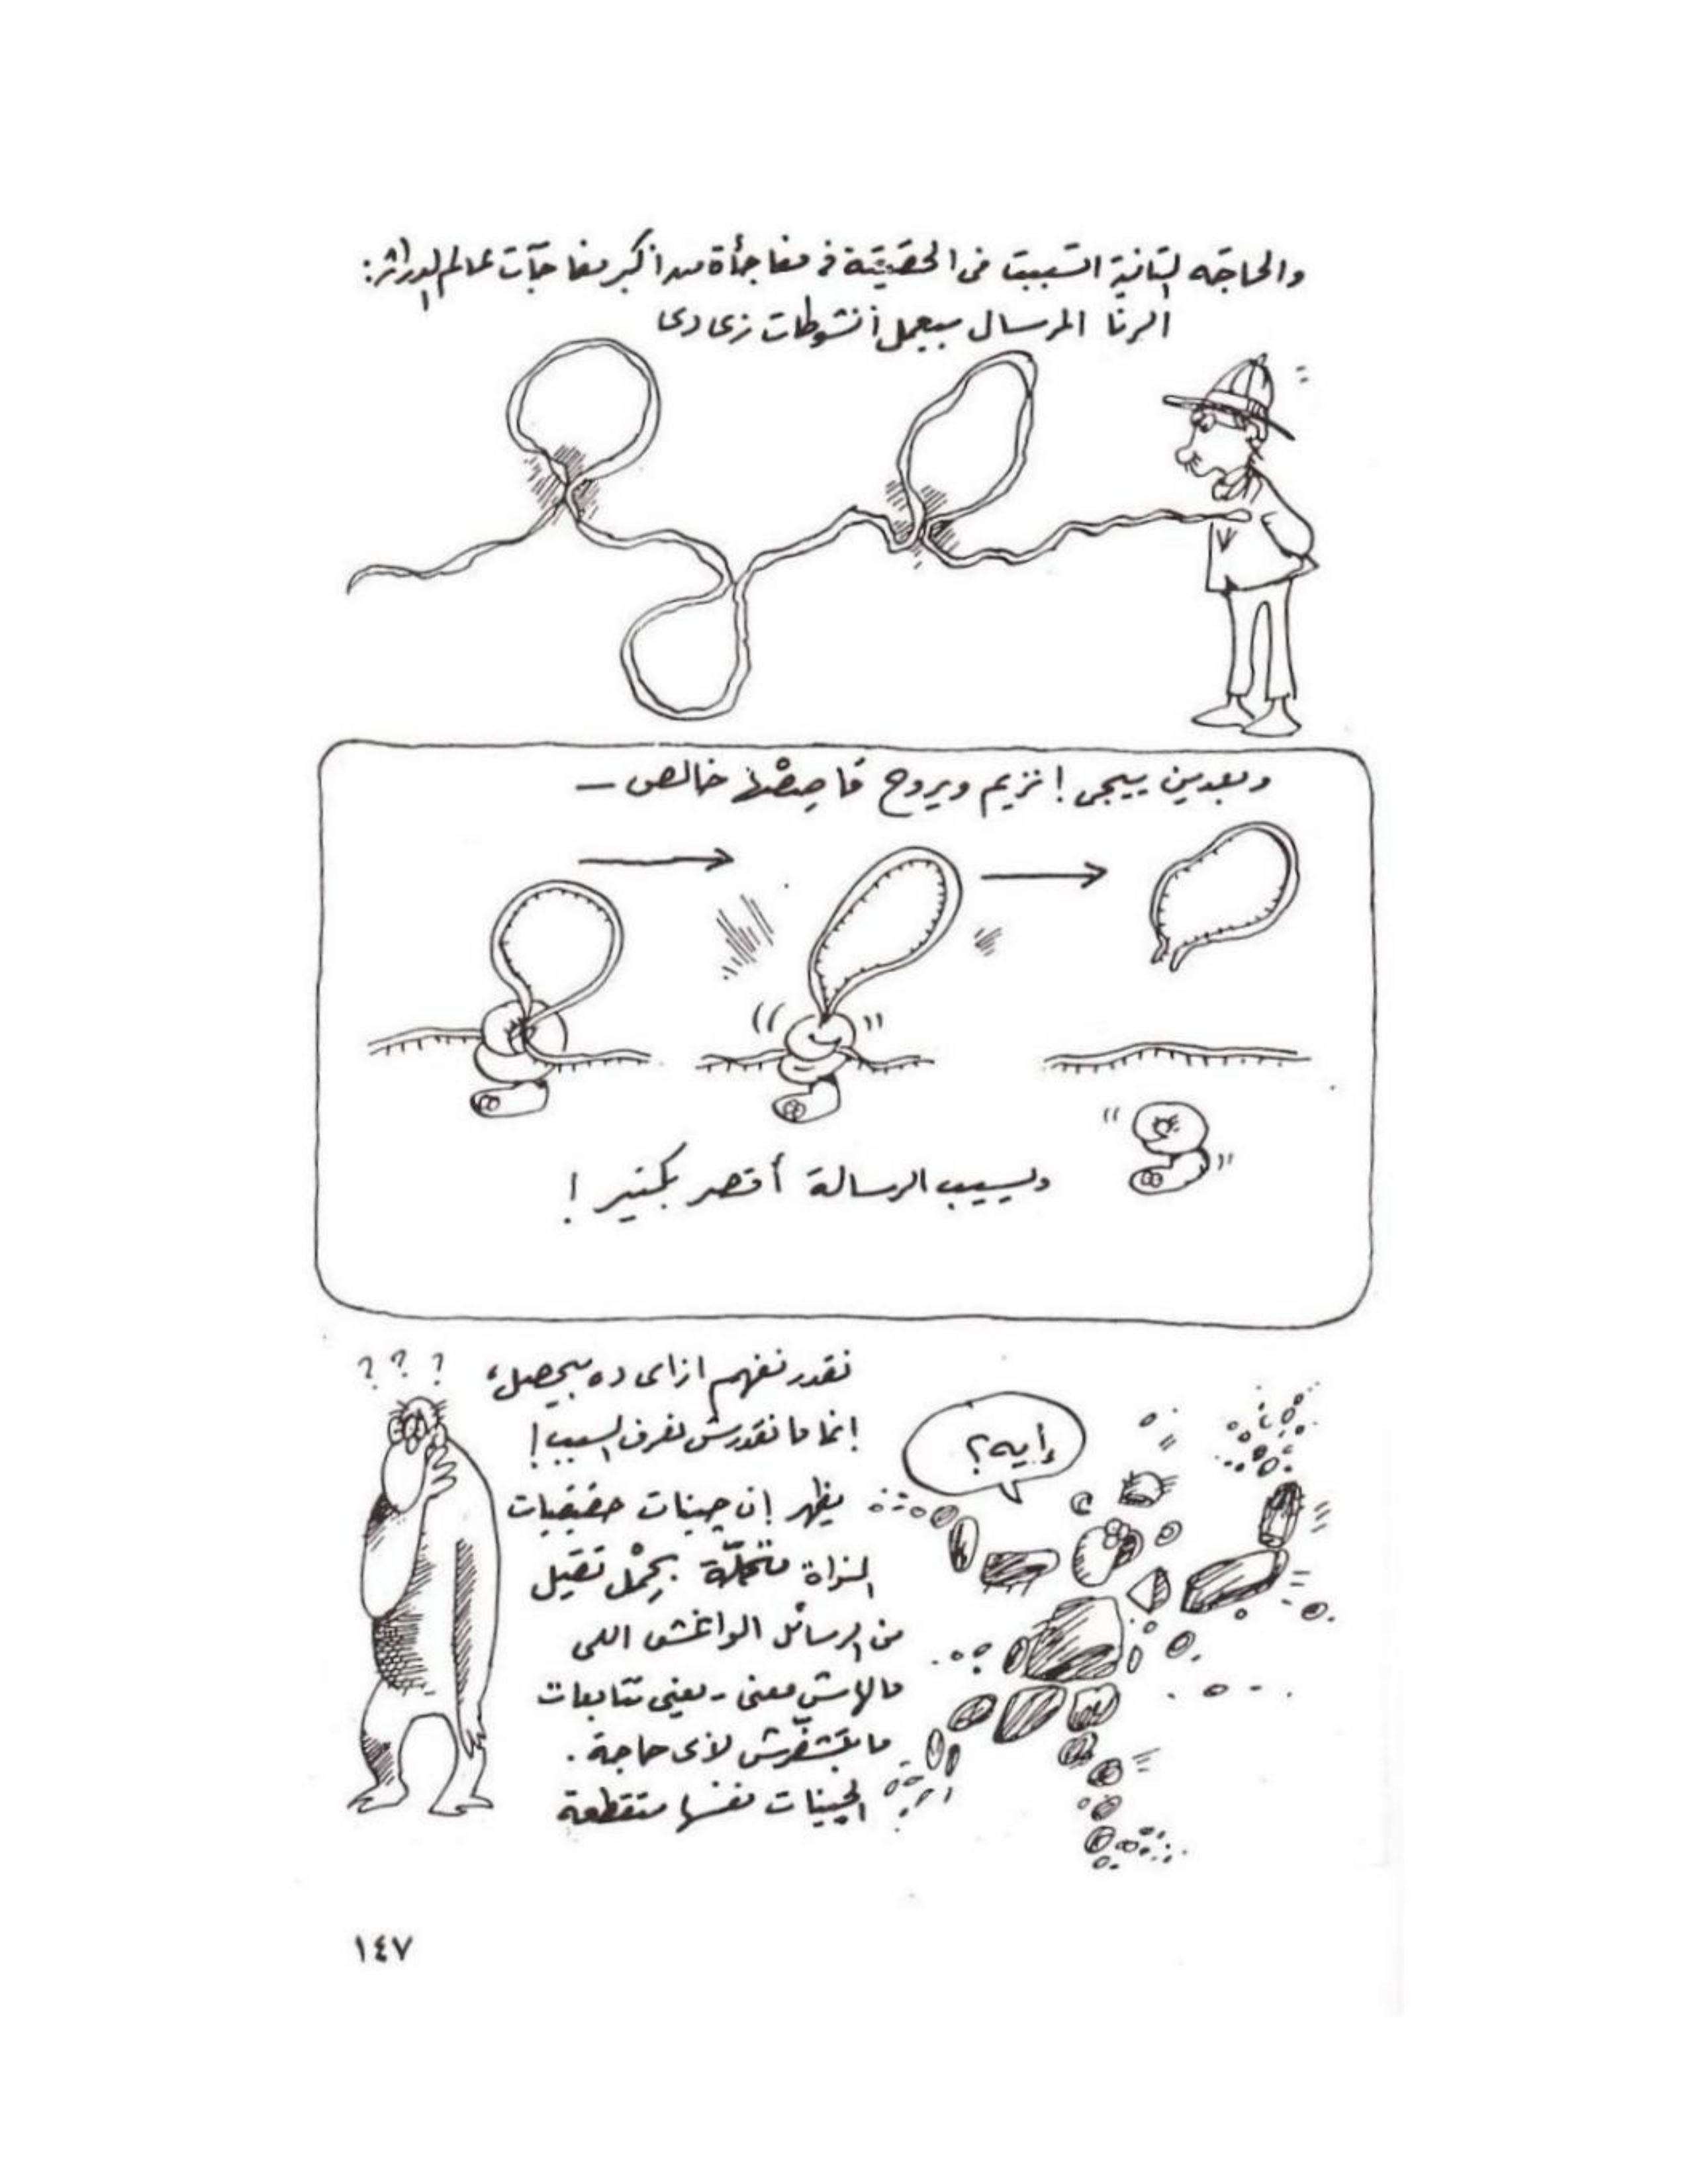 والحاجة التانية اتسببت فى الحقيقة فى مفاجأة من أكبر مفاجآت عالم الوراثة:
الرنا المرسال بيعمل أنشوطات زى دى
وبعدين ييجى إنزيم ويروح قاصصها خالص —
ويسيب الرسالة أقصر بكتير!
? ? ?
نقدر نفهم ازاى ده بيحصل،
إنما ما نقدرش نعرف السبب!
إيه؟
يظهر إن جينات حقيقيات
النواة متحملة بحمل تقيل
من الرسائل الواغش اللى
مالهاش معنى - يعنى تتابعات
ما بتشفرش لأى حاجة.
الجينات نفسها متقطعة
١٤٧